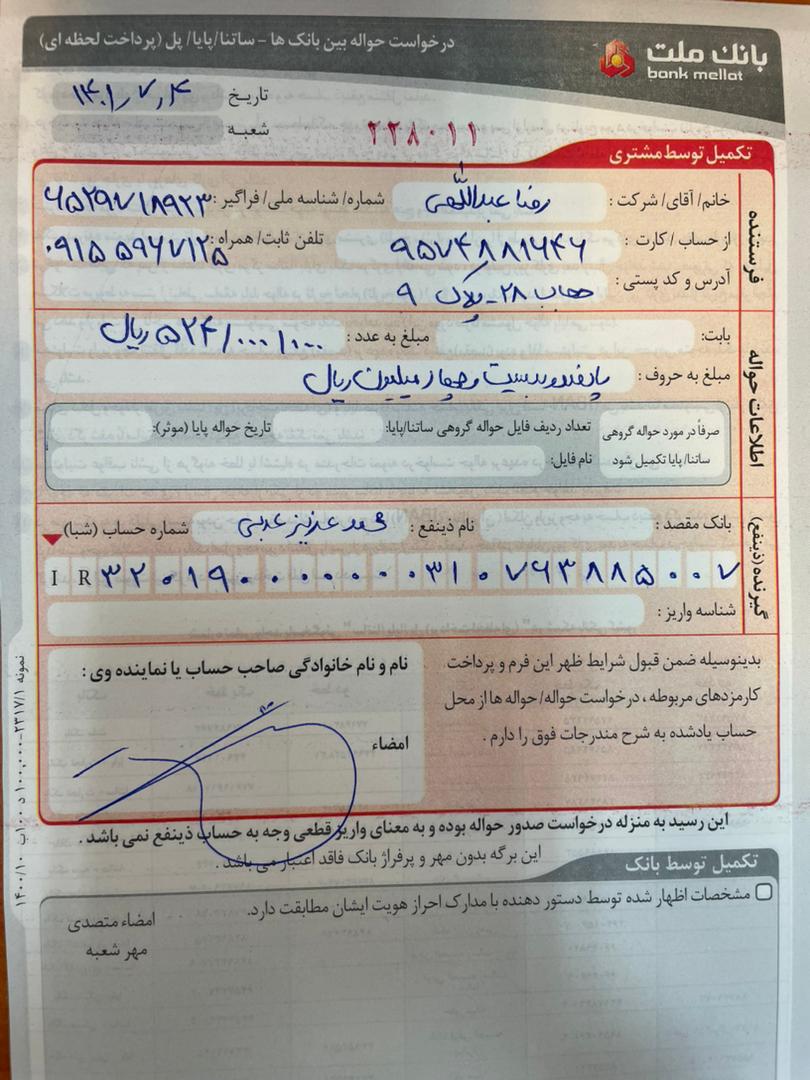 درخواست حواله بین بانک ها - ساتنا/پایا/ پل (پرداخت لحظه ای)
بانک ملت
bank mellat
تاریخ ۱۴۰۱٫۷٫۴
شعبه
۲۲۸۰۱۱
تکمیل توسط مشتری
فرستنده
خانم/ آقای/ شرکت : رضا عبداللهی شماره/ شناسه ملی/ فراگیر: ۶۵۲۹۷۱۸۹۲۳
از حساب/ کارت : ۹۵۷۴۸۸۱۶۴۶ تلفن ثابت/ همراه: ۰۹۱۵۵۹۶۷۱۲۵
آدرس و کد پستی : ۲۸ - پلاک ۹
اطلاعات حواله
بابت: مبلغ به عدد : ۵۲۴/۰۰۰/۰۰۰ ریال
مبلغ به حروف : پانصد و بیست و چهار میلیون ریال
صرفاً در مورد حواله گروهی تعداد ردیف فایل حواله گروهی ساتنا/پایا: تاریخ حواله پایا (موثر):
ساتنا/ پایا تکمیل شود نام فایل:
گیرنده (ذینفع)
بانک مقصد : نام ذینفع : محمد عزیز شماره حساب (شبا)
I R ۳۲۰۱۹۰۰۰۰۰۰۰۳۱۰۷۶۳۸۸۵۰۰۷
شناسه واریز :
بدینوسیله ضمن قبول شرایط ظهر این فرم و پرداخت
کارمزدهای مربوطه ، درخواست حواله/ حواله ها از محل
حساب یادشده به شرح مندرجات فوق را دارم .
نام و نام خانوادگی صاحب حساب یا نماینده وی :
امضاء
این رسید به منزله درخواست صدور حواله بوده و به معنای واریز قطعی وجه به حساب ذینفع نمی باشد .
این برگه بدون مهر و پرفراژ بانک فاقد اعتبار می باشد .
تکمیل توسط بانک
مشخصات اظهار شده توسط دستور دهنده با مدارک احراز هویت ایشان مطابقت دارد.
امضاء متصدی
مهر شعبه